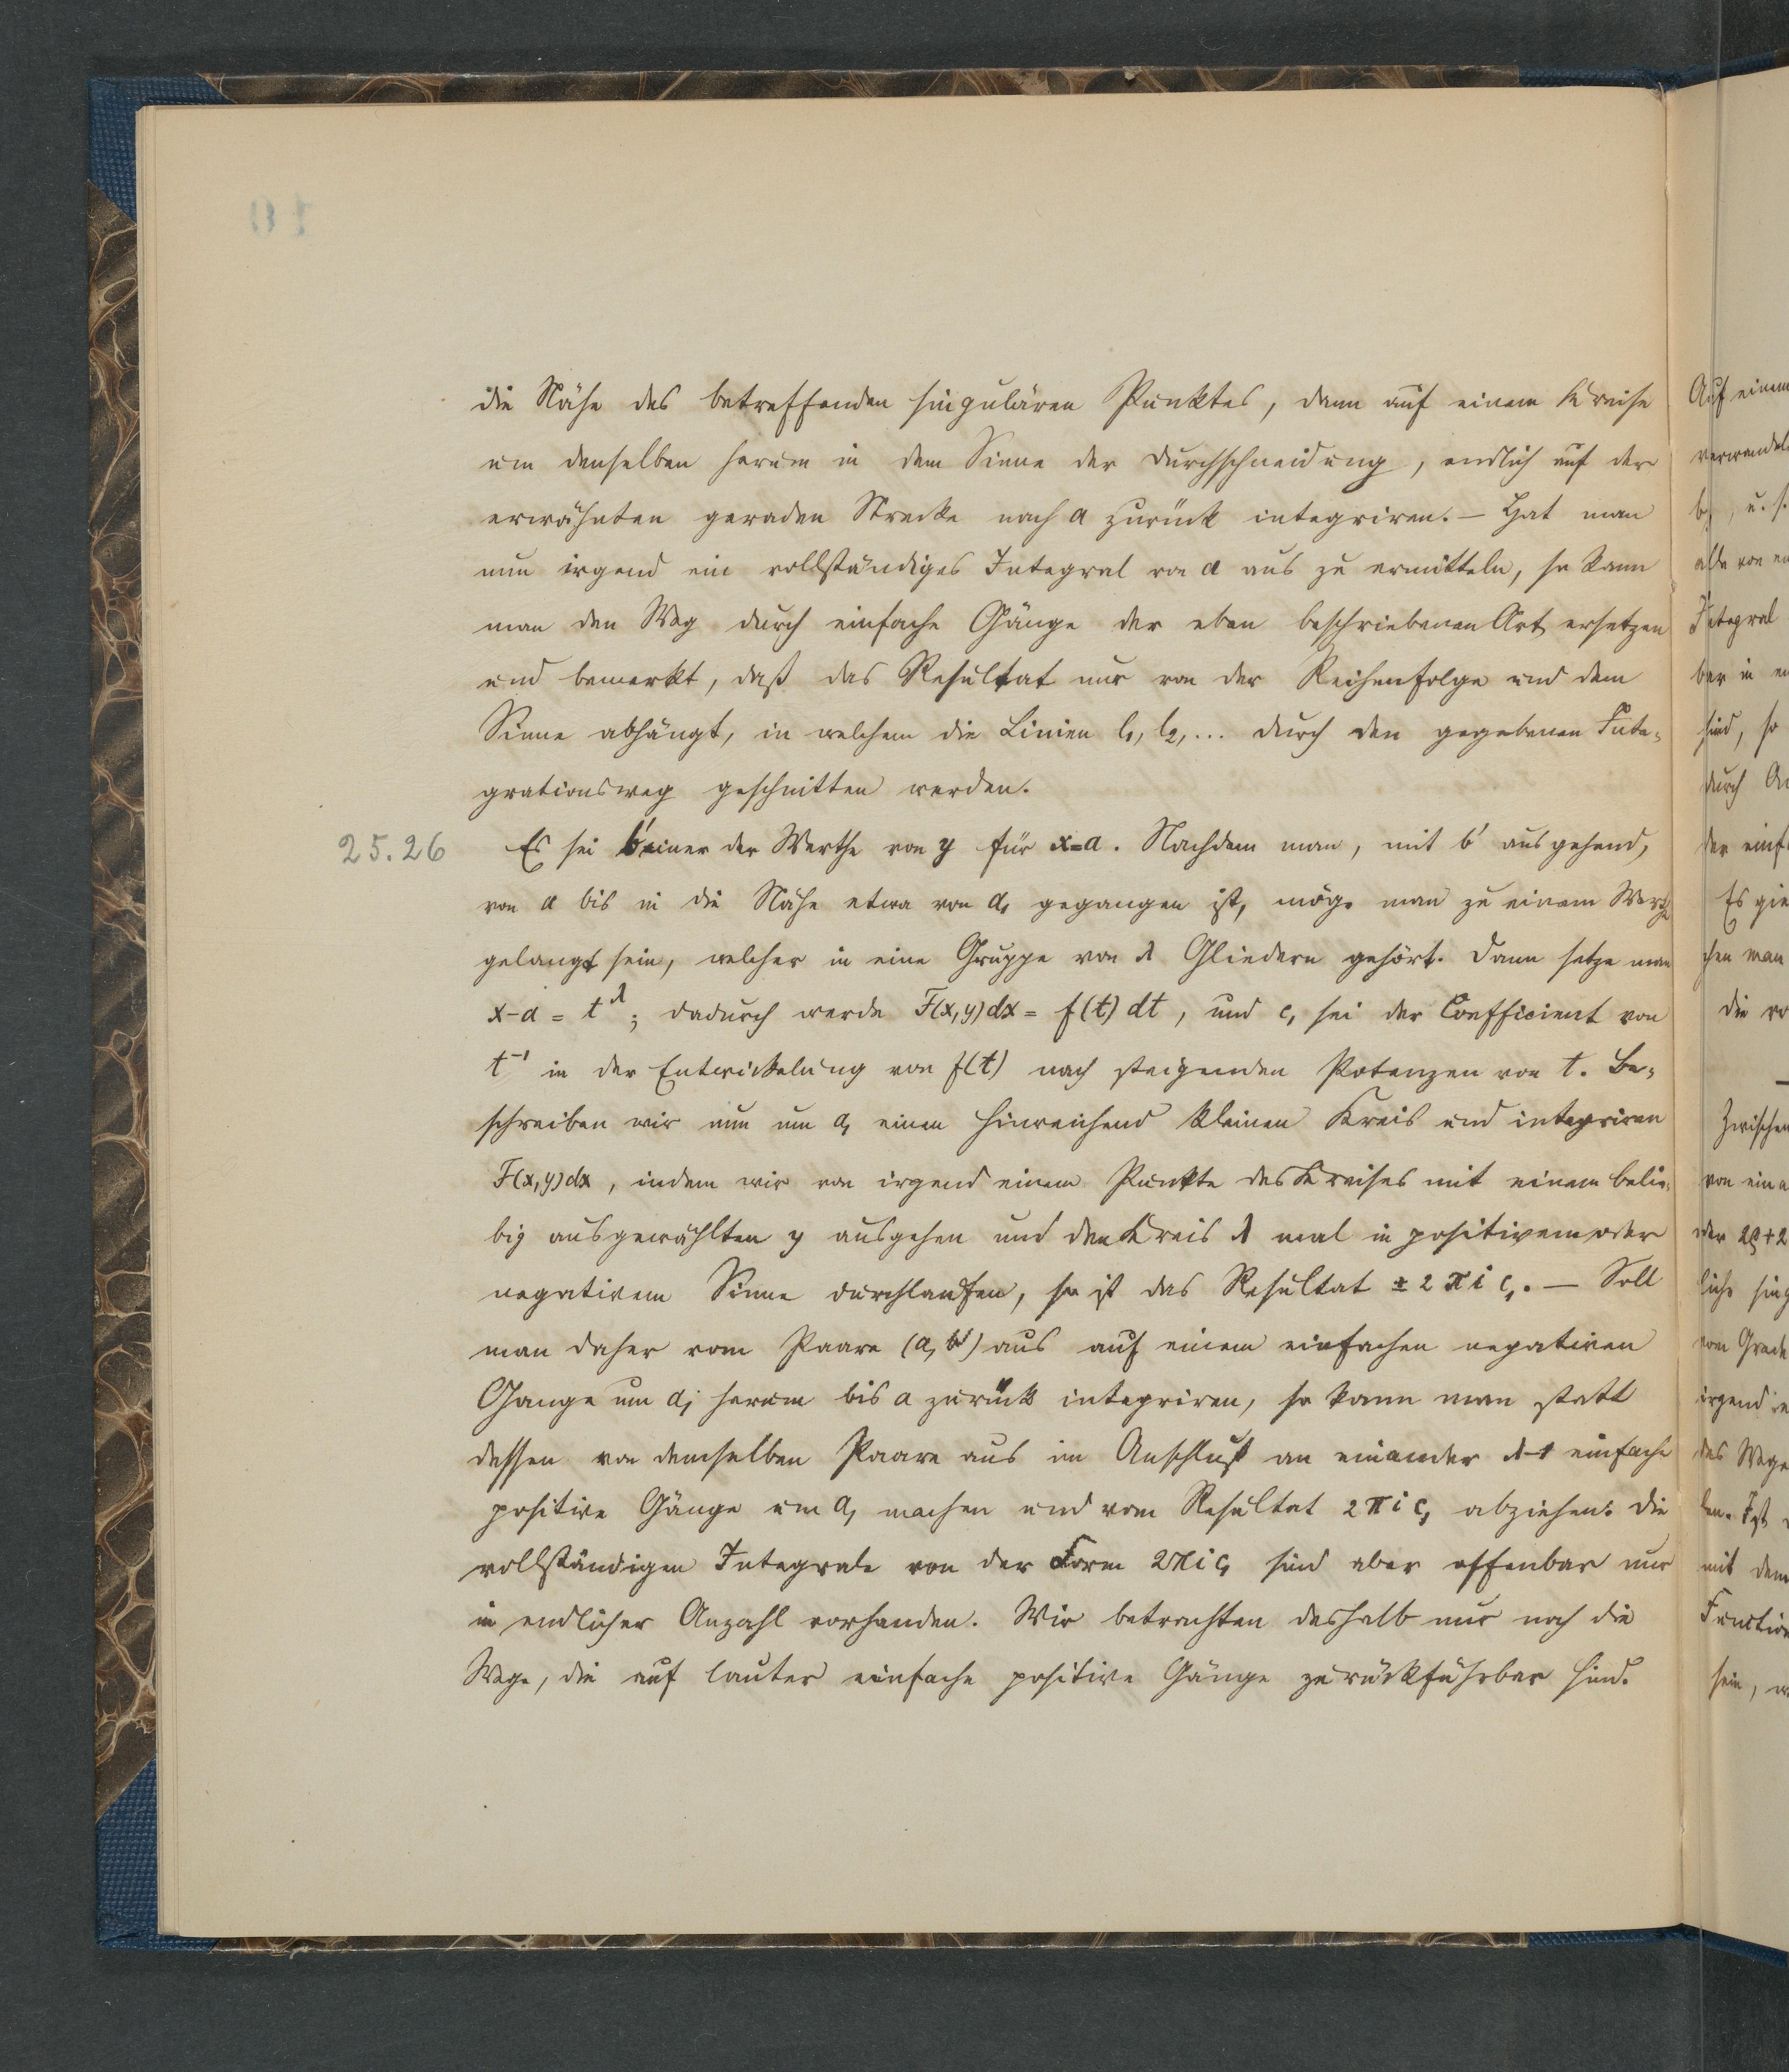 die Nähe des betreffenden singulären Punktes, dann auf einem Kreise
um denselben herum in dem Sinne der Durchschneidung, endlich auf der
erwähnten geraden Strecke nach a zurück integriren. — Hat man
nun irgend ein vollständiges Integral von a aus zu ermitteln, so kann
man den Weg durch einfache Gänge der eben beschriebenen Art ersetzen
und bemerkt, daß das Resultat nur von der Reihenfolge und dem
Sinne abhängt, in welchem die Linien l₁, l₂, ... durch den gegebenen Inte-
grationsweg geschnitten werden.
25.26 Es sei b' einer der Werthe von y für x=a. Nachdem man, mit b' ausgehend,
von a bis in die Nähe etwa von a₁ gegangen ist, möge man zu einem Werthe
gelangt sein, welcher in eine Gruppe von λ Gliedern gehört. Dann setze man
x-a = t^λ; dadurch werde F(x,y)dx = f(t) dt, und c₁ sei der Coefficient von
t⁻¹ in der Entwickelung von f(t) nach steigenden Potenzen von t. Be-
schreiben wir nun um a₁ einen hinreichend kleinen Kreis und integriren
F(x,y)dx, indem wir von irgend einem Punkte des Kreises mit einem belie-
big ausgewählten y ausgehen und den Kreis λ mal in positivem oder
negativem Sinne durchlaufen, so ist das Resultat ± 2πi c₁. — Soll
man daher vom Paare (a, b') aus auf einem einfachen negativen
Gange um a₁ herum bis a zurück integriren, so kann man statt
dessen von demselben Paare aus im Anschluß an einander λ-1 einfache
positive Gänge um a₁ machen und vom Resultat 2πi c₁ abziehen. Die
vollständigen Integrale von der Form 2πi c₁ sind aber offenbar nur
in endlicher Anzahl vorhanden. Wir betrachten deshalb nur noch die
Wege, die auf lauter einfache positive Gänge zurückführbar sind.
Auf einem
b₁, u. s.
Integral
sind, so
durch
Es gie
man
Zwischen
oder 2ρ+2
vom Grade
irgend
des Wege
Ist
mit dem
Function
sein,